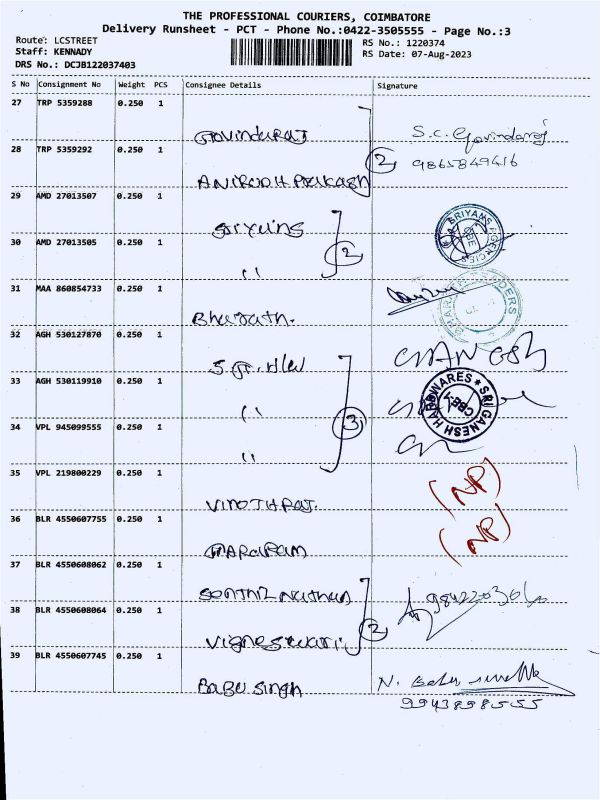 THE PROFESSIONAL COURIERS, COIMBATORE
Delivery Runsheet - PCT - Phone No.:0422-3505555 - Page No.:3
Route: LCSTREET
RS No.: 1220374
Staff: KENNADY
RS Date: 07-Aug-2023
DRS No.: DCJB122037403
S No Consignment No Weight PCS Consignee Details Signature
27 TRP 5359288 0.250 1
Govindaraj S.C. Govindaraj
28 TRP 5359292 0.250 1 2 9865849416
ANIRUDH Prakash
29 AMD 27013507 0.250 1
Sriyans SRIYANS AGENCIES CBE
30 AMD 27013505 0.250 1 2
"
31 MAA 860854733 0.250 1
Bharath.
32 AGH 530127870 0.250 1
S.G. H/W
33 AGH 530119910 0.250 1 SRI GANESH HARDWARES CBE-1
" 3
34 VPL 945099555 0.250 1
"
35 VPL 219800229 0.250 1 (NP)
VINOTHRAJ.
36 BLR 4550607755 0.250 1 (NP)
37 BLR 4550608062 0.250 1
Senthil Nathan
38 BLR 4550608064 0.250 1 2
Vigneswari
39 BLR 4550607745 0.250 1
Babu Singh N. Babu
9943898555